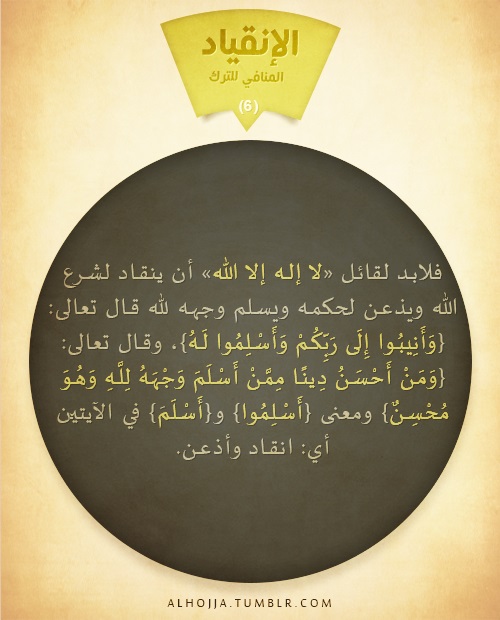 الإنقياد
المنافي للترك
(6)
فلابد لقائل «لا إله إلا الله» أن ينقاد لشرع
الله ويذعن لحكمه ويسلم وجهه لله قال تعالى:
{وَأَنِيبُوا إِلَى رَبِّكُمْ وَأَسْلِمُوا لَهُ}، وقال تعالى:
{وَمَنْ أَحْسَنُ دِينًا مِمَّنْ أَسْلَمَ وَجْهَهُ لِلَّهِ وَهُوَ
مُحْسِنٌ} ومعنى {أَسْلِمُوا} و{أَسْلَمَ} في الآيتين
أي: انقاد وأذعن.
ALHOJJA.TUMBLR.COM